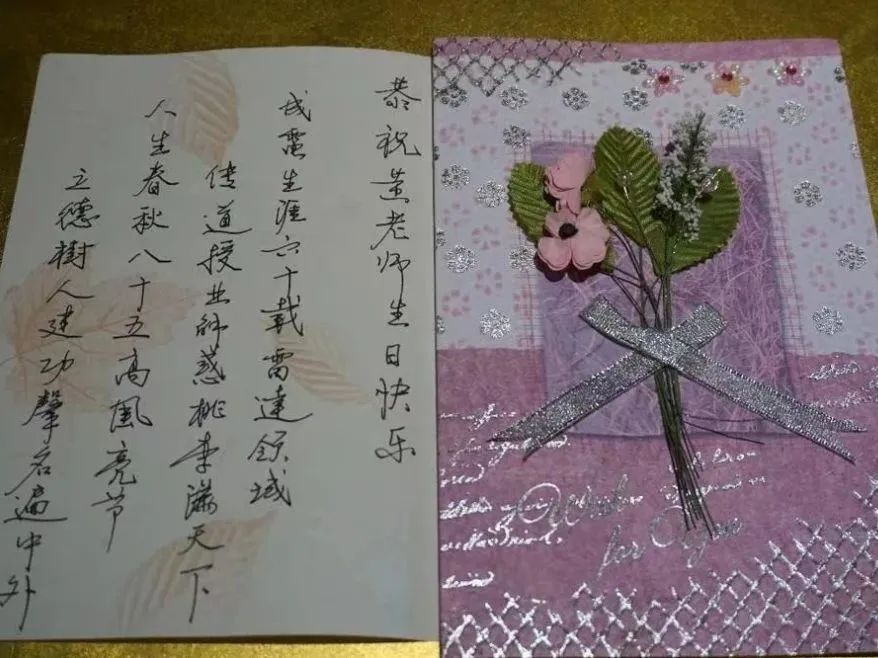 恭祝黄老师生日快乐
戎電生涯六十载雷達领域
传道授业解惑桃李满天下
人生春秋八十五高風亮节
立德樹人建功聲名遍中外
Wish
for You